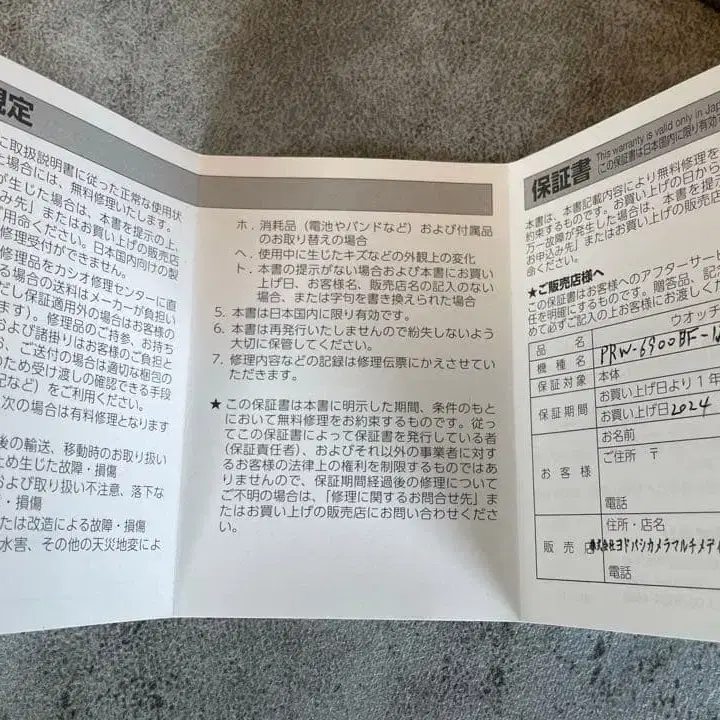 規定
に取扱説明書に従った正常な使用状
た場合には、無料修理いたします。
が生じた場合は、本書を提示の上、
み先」またはお買い上げの販売店
用命ください。日本国内向けの製
修理受付ができません。
修理品をカシオ修理センターに直
る場合の送料はメーカーが負担い
だし保証適用外の場合はお客様の
ます）。修理品のご持参、お持ち
および諸掛りはお客様のご負担と
お、ご送付の場合は適切な梱包の
のため受け渡しの確認できる手段
記など）をご利用ください。
次の場合は有料修理となります
後の輸送、移動時のお取り扱い
ため生じた故障・損傷
および取り扱い不注意、落下な
・損傷
たは改造による故障・損傷
水害、その他の天災地変によ
ホ．消耗品（電池やバンドなど）および付属品
のお取り替えの場合
ヘ．使用中に生じたキズなどの外観上の変化
ト．本書の提示がない場合および本書にお買い
上げ日、お客様名、販売店名の記入のない
場合、または字句を書き換えられた場合
5. 本書は日本国内に限り有効です。
6. 本書は再発行いたしませんので紛失しないよう
大切に保管してください。
7. 修理内容などの記録は修理伝票にかえさせてい
ただきます。
★ この保証書は本書に明示した期間、条件のもと
において無料修理をお約束するものです。従っ
てこの保証書によって保証書を発行している者
（保証責任者）、およびそれ以外の事業者に対す
るお客様の法律上の権利を制限するものではあ
りませんので、保証期間経過後の修理について
ご不明の場合は、「修理に関するお問合せ先」ま
たはお買い上げの販売店にお問い合わせくださ
い。
保証書 This warranty is valid only in Jap
（この保証書は日本国内に限り有効
本書は、本書記載内容により無料修理を
約束するものです。お買い上げの日から
万一故障が発生した場合は、本書を提示
お申込み先」またはお買い上げの販売店
命ください。
★ご販売店様へ
この保証書はお客様へのアフターサービ
任を明確にするものです。贈答品、記
めて必ずご記入の上お客様にお渡しくだ
品名 ウオッチ
機種名 PRW-6900BF-
保証対象 本体
保証期間 お買い上げ日より1年
お買い上げ日 2024
お客様 お名前
ご住所 〒
電話
販売店 住所・店名
株式会社ヨドバシカメラマルチメディ
電話